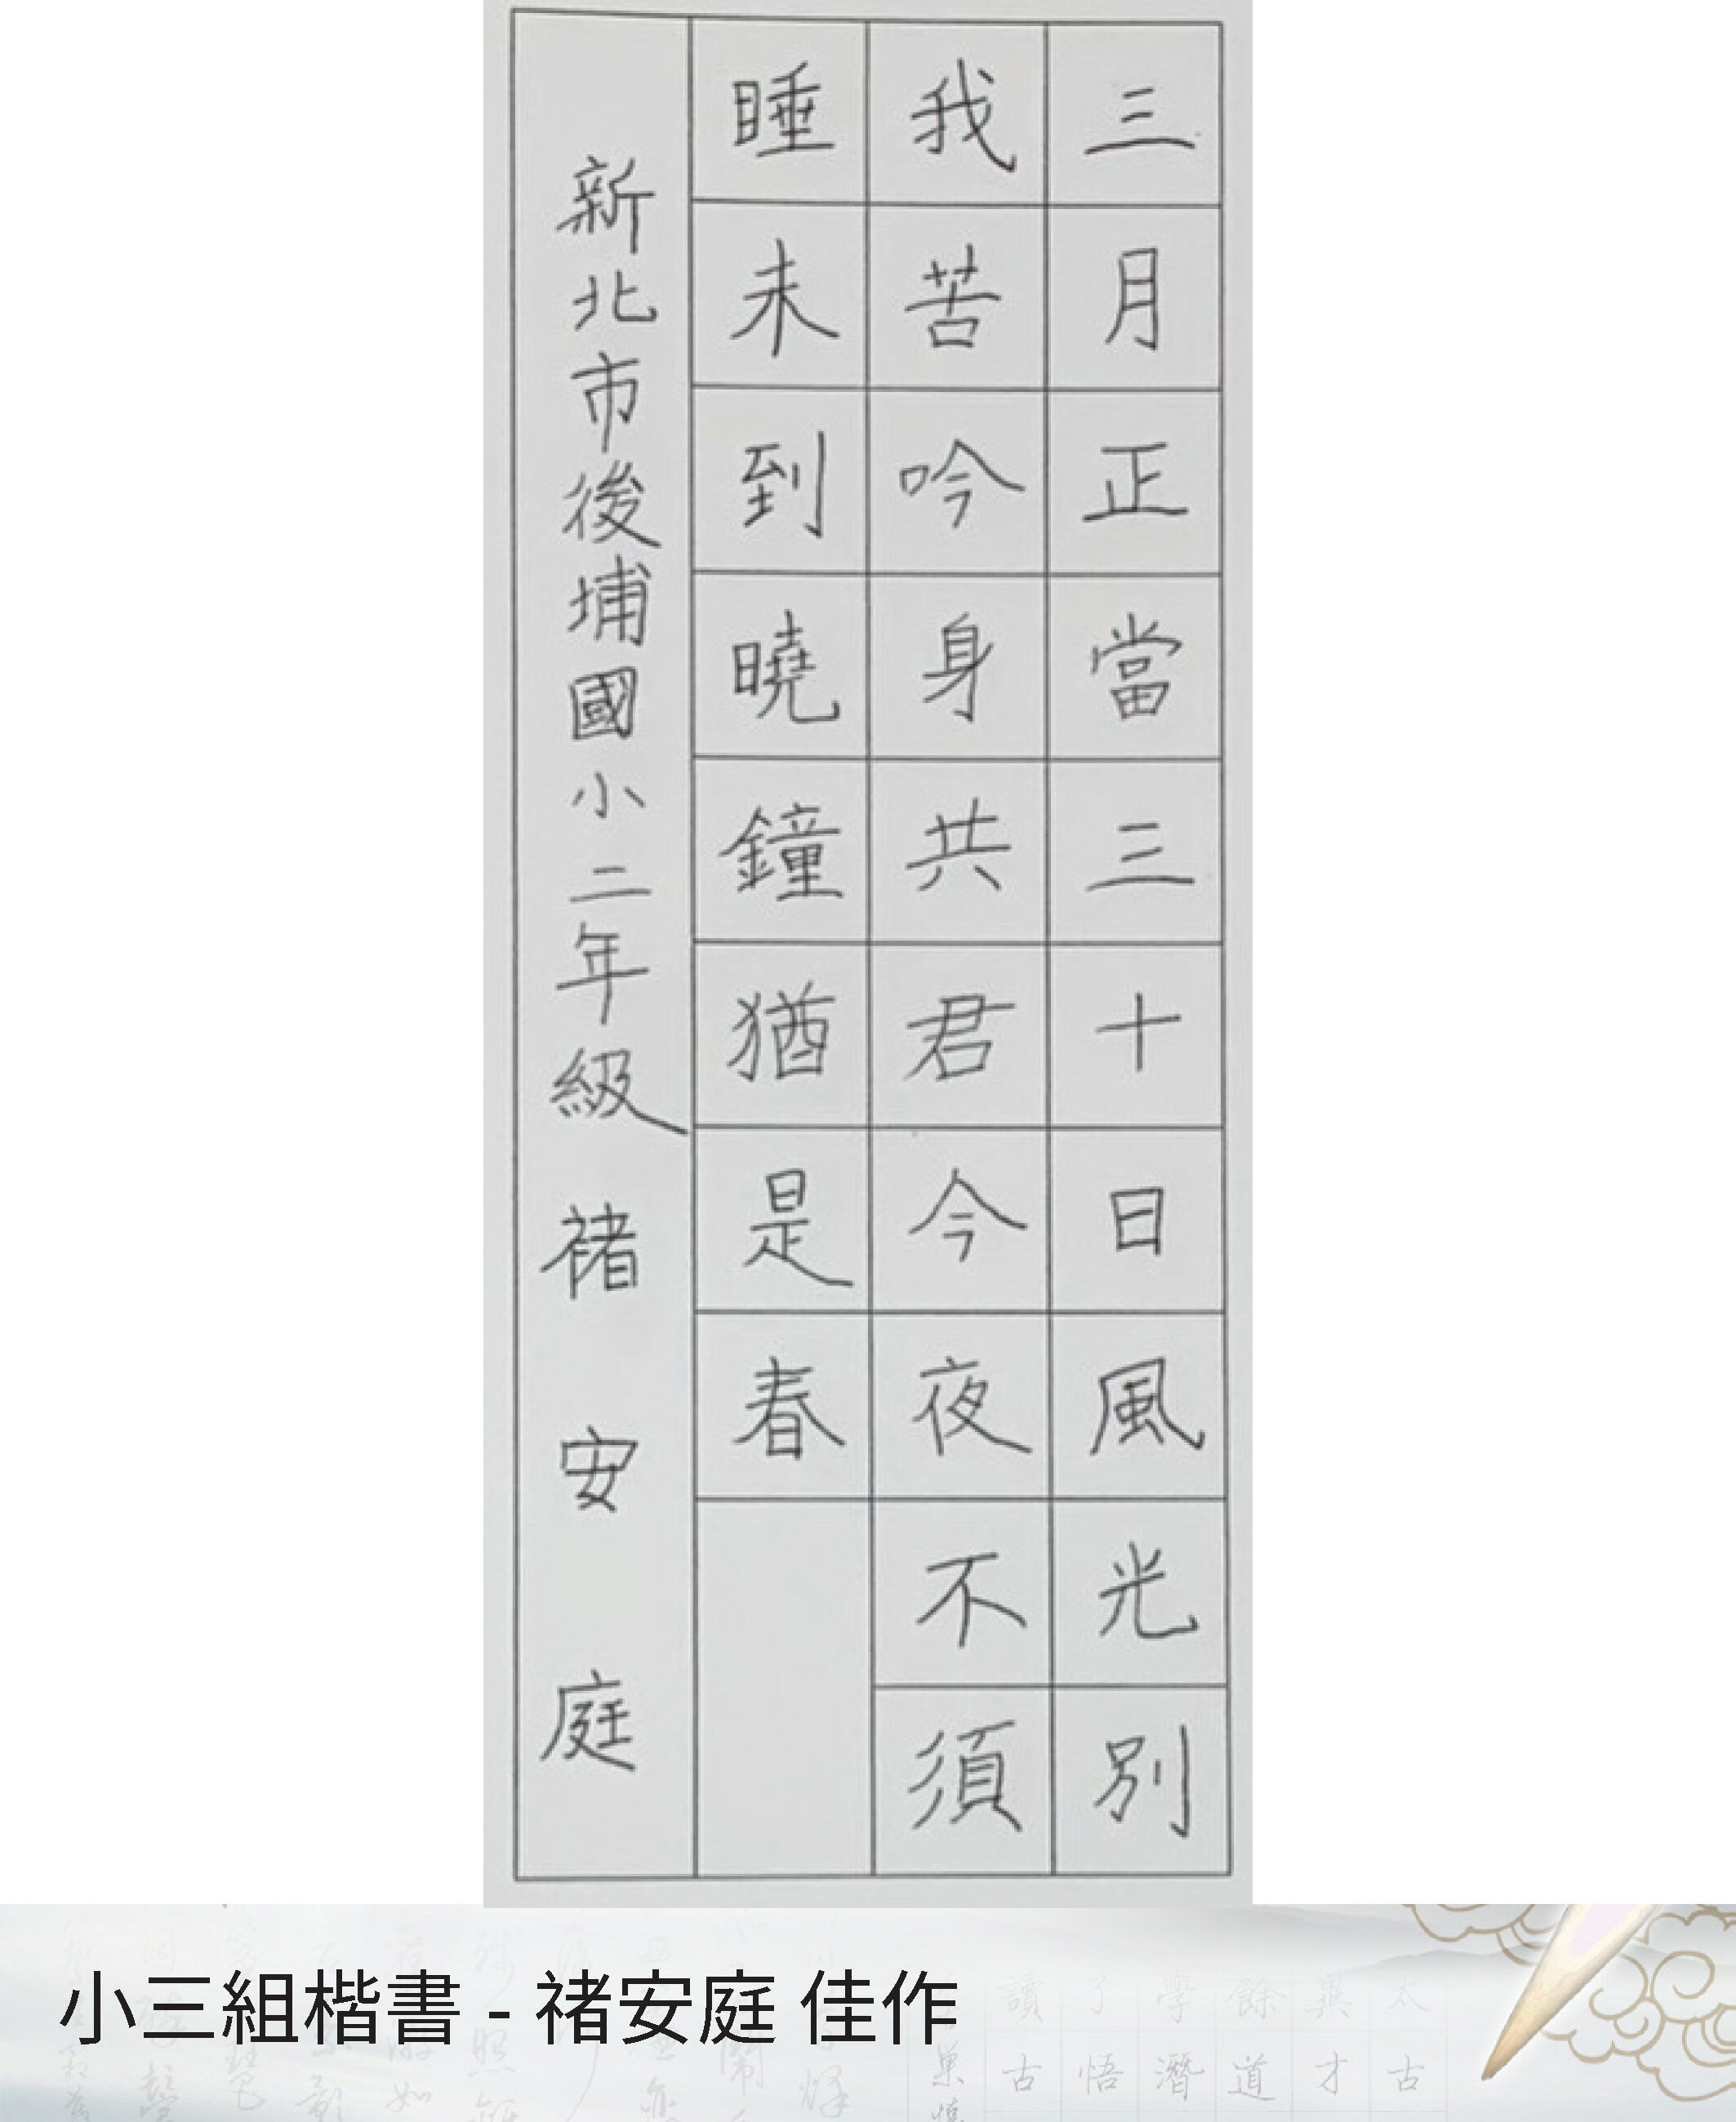 三月正當三十日風光別
我苦吟身共君今夜不須
睡未到曉鐘猶是春
新北市後埔國小二年級 褚安庭
小三組楷書 - 褚安庭 佳作
讀了學餘與太
古悟潛道才古